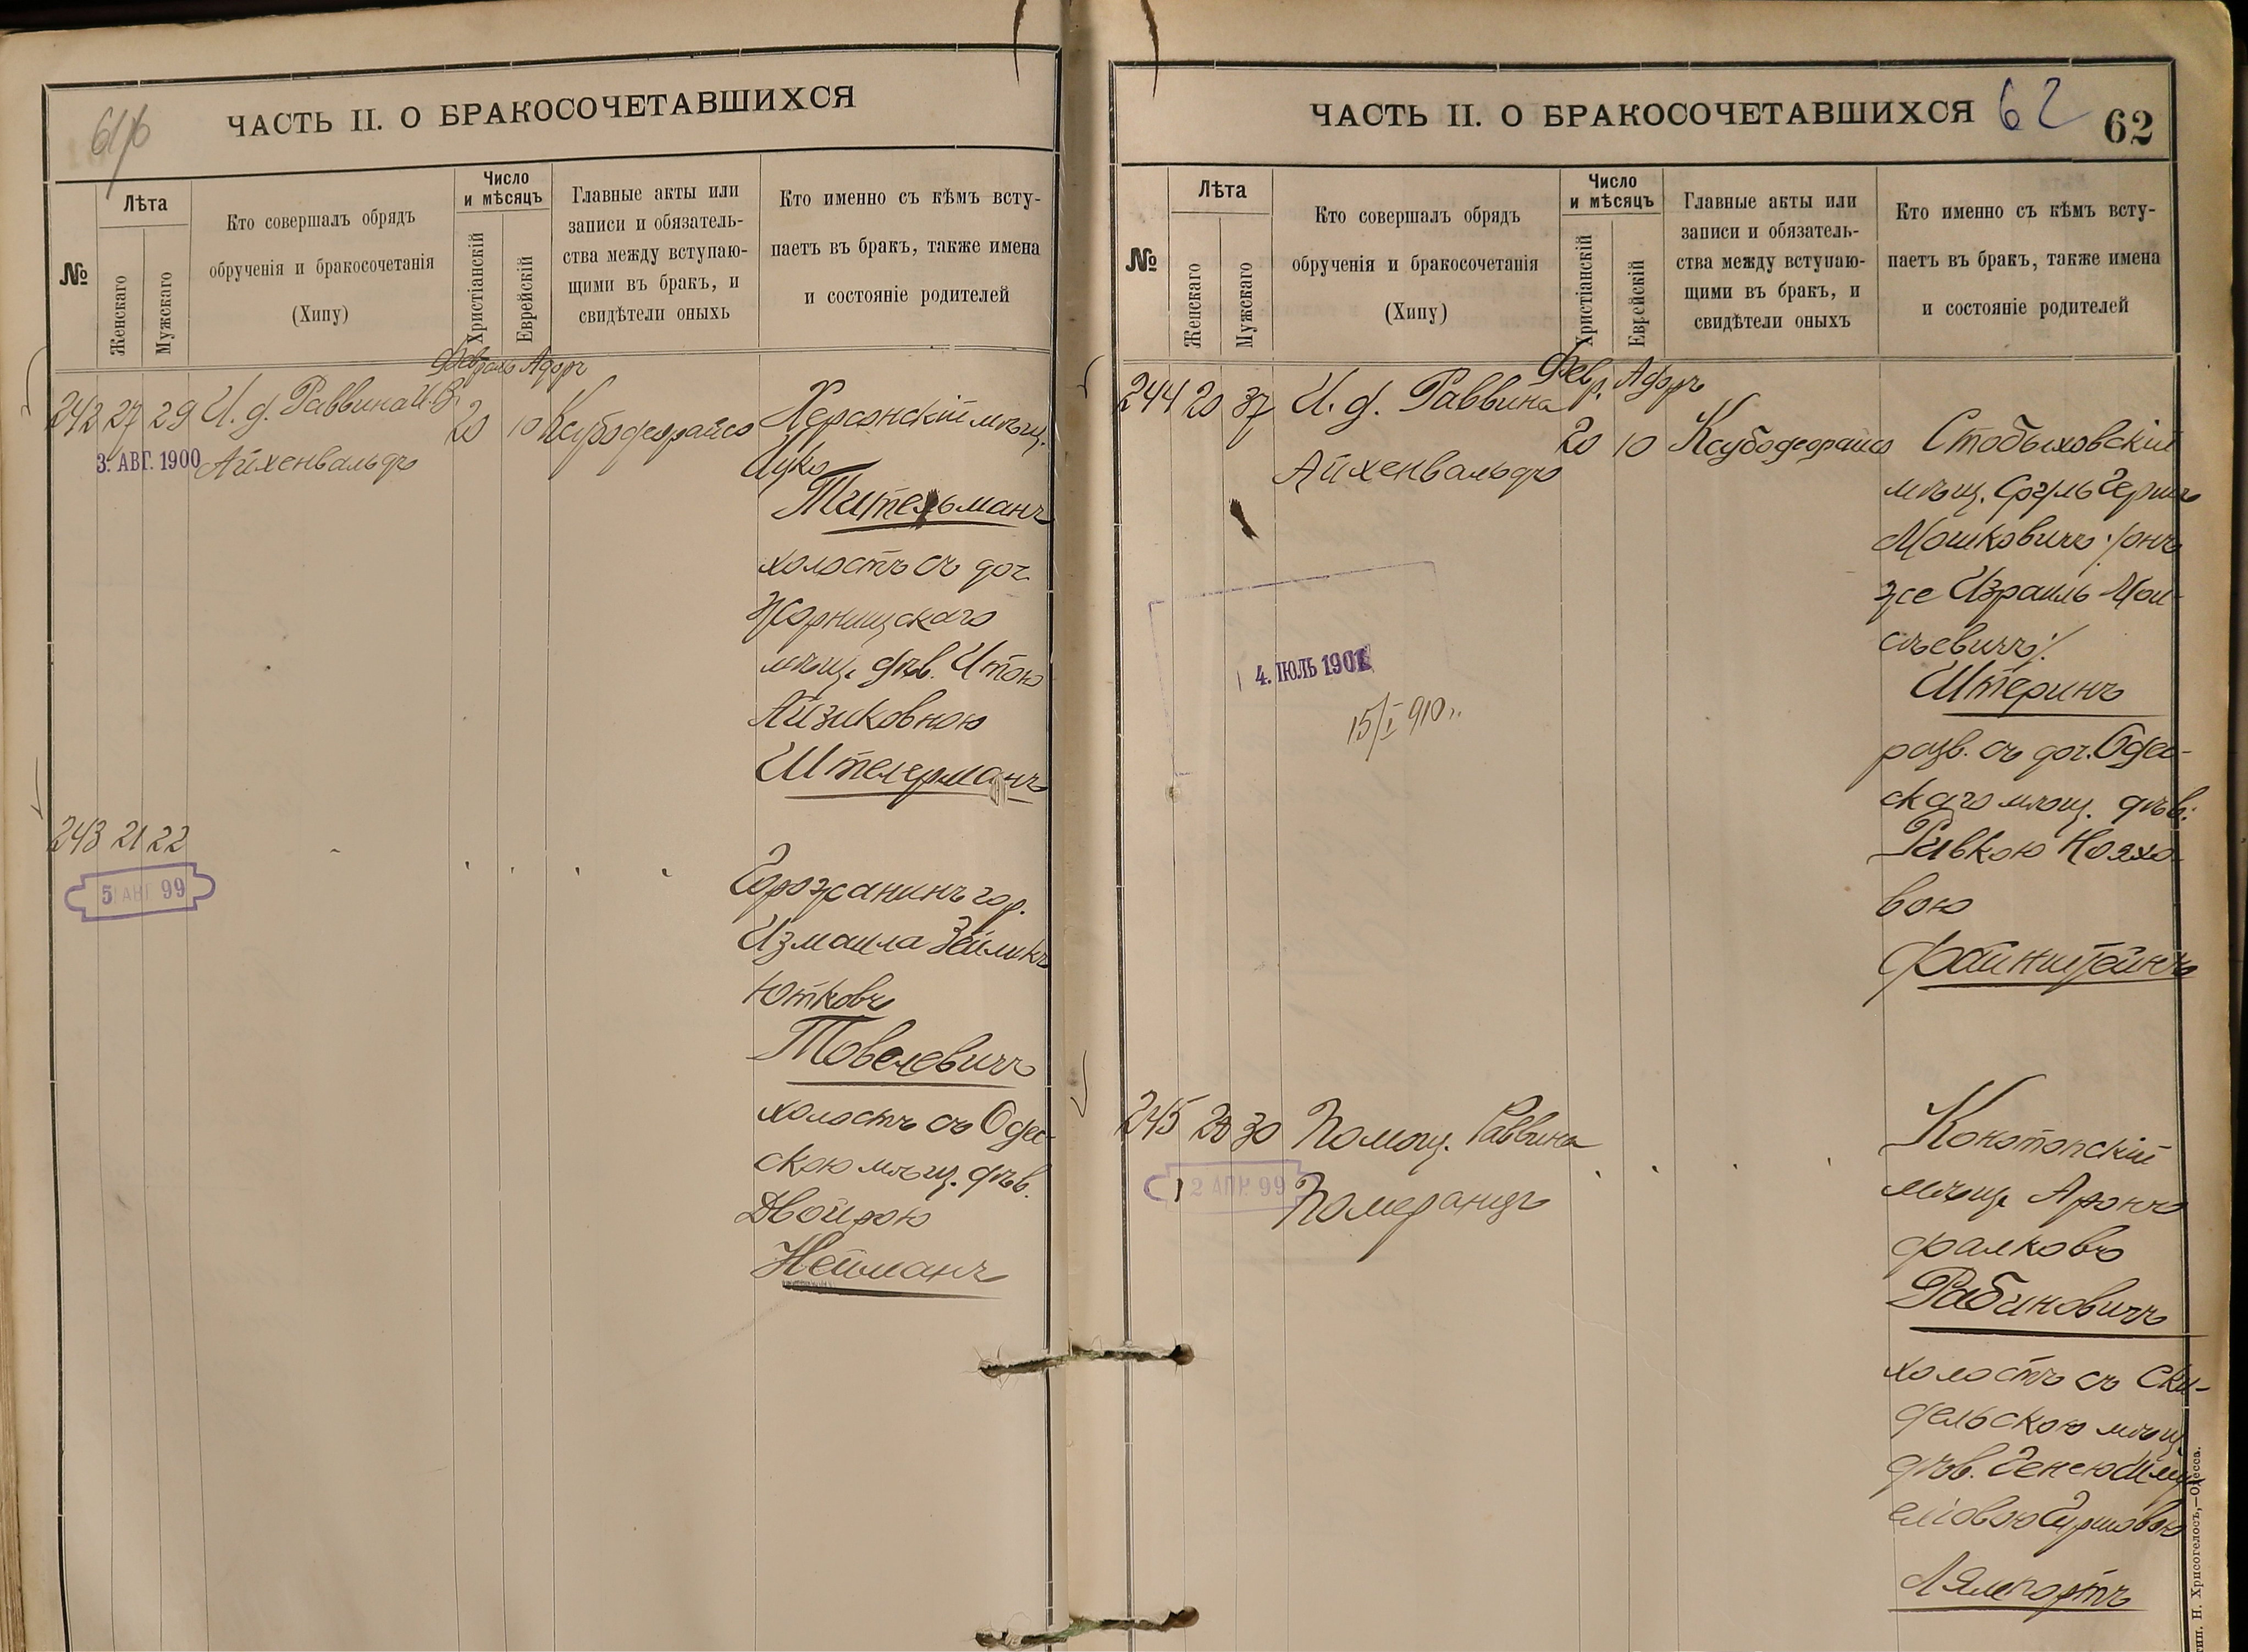 61/б
ЧАСТЬ II. О БРАКОСОЧЕТАВШИХСЯ
№
Лѣта
Женскаго
Мужскаго
Кто совершалъ обрядъ
обрученія и бракосочетанія
(Хипу)
Число
и мѣсяцъ
Христіанскій
Еврейскій
Главные акты или
записи и обязатель-
ства между вступаю-
щими въ бракъ, и
свидѣтели оныхь
Кто именно съ кѣмъ всту-
паетъ въ бракъ, также имена
и состояніе родителей
Февраль Адаръ
242 27 29 И. д. Раввина
Айхенвальдъ
3. АВГ. 1900
20 10 Ксубодеорайсо
Херсонскій мѣщ.
Ицко
Тительманъ
холостъ съ доч.
Жорнищскаго
мѣщ. дѣв. Итою
Айзиковною
Штелерманъ
243 21 22
5 АВГ 99
Горожанинъ гор.
Измаила Зейликъ
Ютковъ
Товелевичъ
холостъ съ Одес-
скою мѣщ. дѣв.
Двойрою
Нейманъ
ЧАСТЬ II. О БРАКОСОЧЕТАВШИХСЯ
62
62
№
Лѣта
Женскаго
Мужскаго
Кто совершалъ обрядъ
обрученія и бракосочетанія
(Хипу)
Число
и мѣсяцъ
Христіанскій
Еврейскій
Главные акты или
записи и обязатель-
ства между вступаю-
щими въ бракъ, и
свидѣтели оныхъ
Кто именно съ кѣмъ всту-
паетъ въ бракъ, также имена
и состояніе родителей
Февр. Адаръ
244 20 37 И. д. Раввина
Айхенвальдъ
20 10 Ксубодеорайсо
4. ІЮЛЬ 1901
15/I 910
Стобыховскій
мѣщ. Сруль Гершъ
Мошковичъ /онъ
же Израиль Мои-
сѣевичъ/.
Штеринъ
разв. съ доч. Одес-
скаго мѣщ. дѣв.
Ривкою Нояхо-
вою
Файнштейнъ
245 20 30 Помощ. Раввина
Померанцъ
2 АПР. 99
Конотопскій
мѣщ. Аронъ
Фалковъ
Рабиновичъ
холостъ съ Ски-
дельскою мѣщ.
дѣв. Генею
Гиршовою
Лямпортъ
тип. Н. Хрисогелосъ,—Одесса.